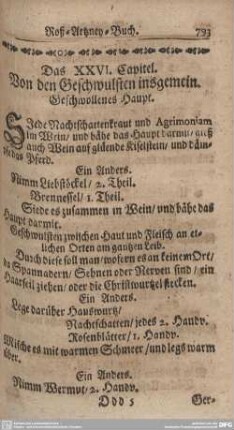 Roß-Artzney-Buch. 793
Das XXVI. Capitel.
Von den Geschwulsten insgemein.
Geschwollenes Haupt.
Siede Nachtschattenkraut und Agrimoniam
in Wein, und bähe das Haupt darmit, gieß
auch Wein auf glüende Kiselstein, und
das Pferd.
Ein Anders.
Nimm Liebstöckel / 2. Theil.
Brennessel / 1. Theil.
Siede es zusammen in Wein / und bähe das
Haupt darmit.
Geschwulsten zwischen Haut und Fleisch an et-
lichen Orten am gantzen Leib.
Durch diese soll man / wofern es an keinem Ort /
da Spannadern / Sehnen oder Nerven sind / ein
Haarseil ziehen / oder die Christwurtzel stecken.
Ein Anders.
Lege darüber Hauswurtz /
Nachtschatten / jedes 2. Handv.
Rosenblätter / 1. Handv.
Mische es mit warmen Schmeer / und legs warm
über.
Ein Anders.
Nimm Wermut / 2. Handv.
Ddd 5 Ger-